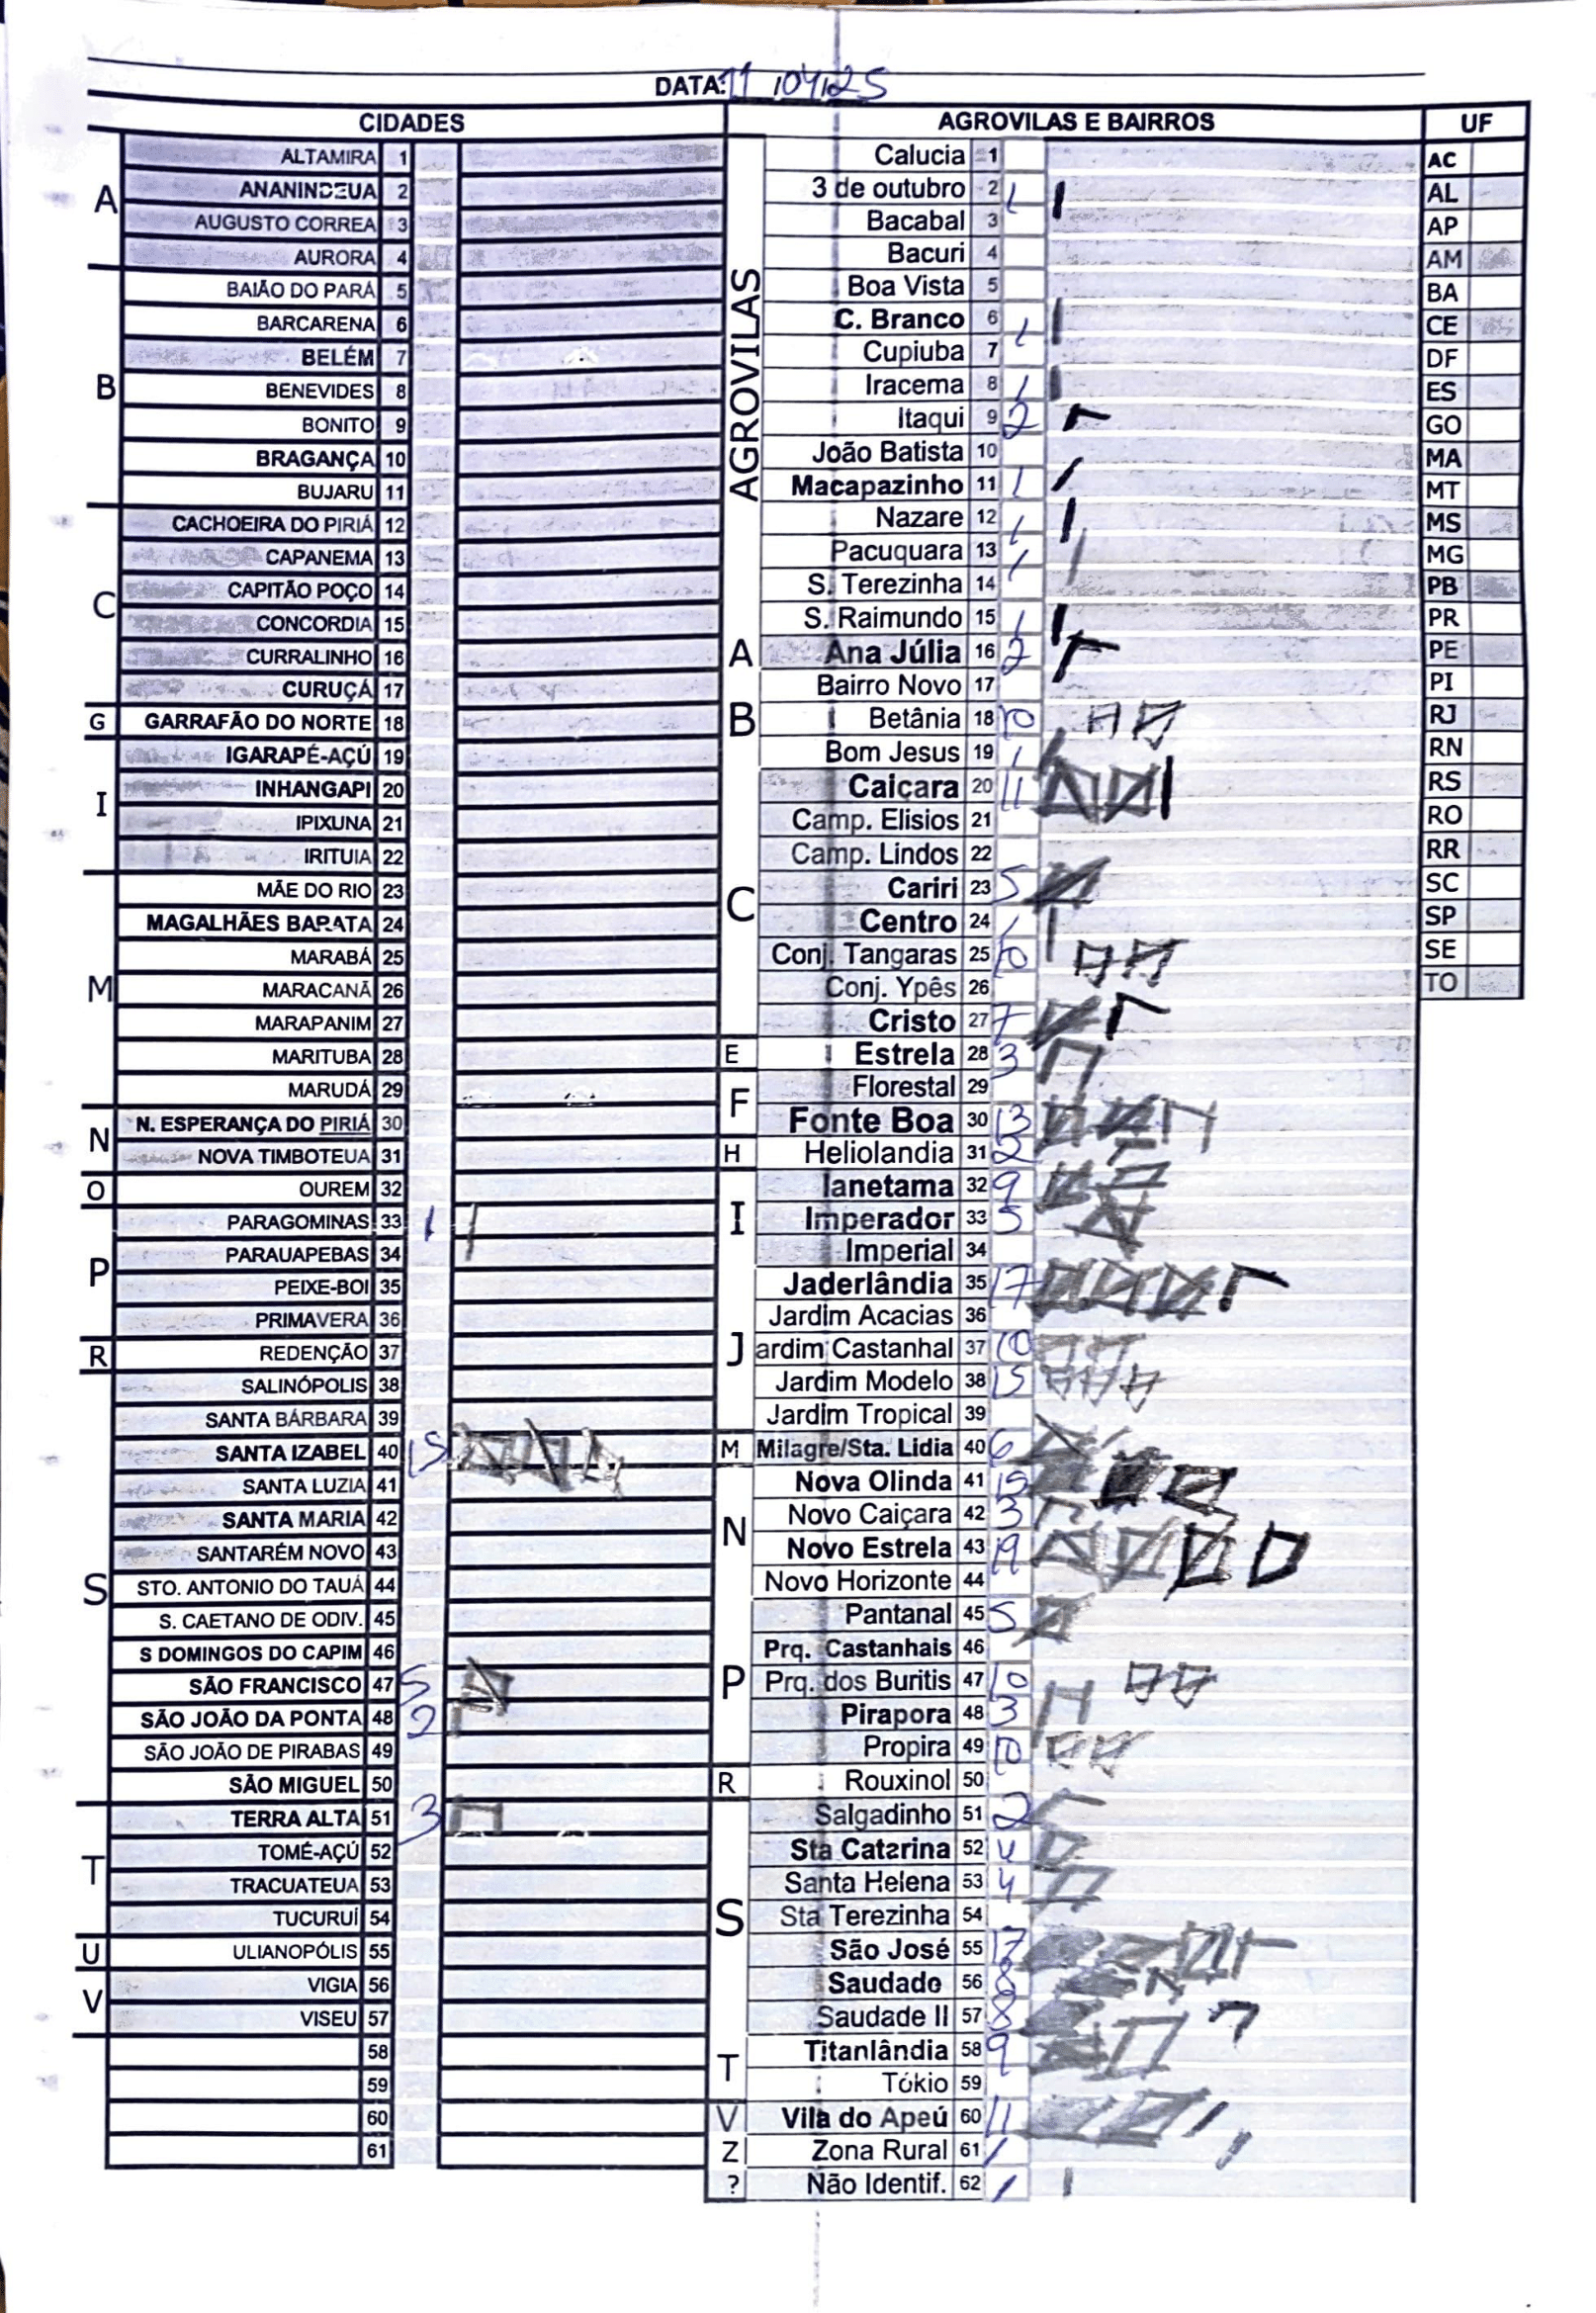 DATA: 11/04/25
CIDADES
AGROVILAS E BAIRROS
UF
A
ALTAMIRA 1
ANANINDEUA 2
AUGUSTO CORREA 3
AURORA 4
B
BAIÃO DO PARÁ 5
BARCARENA 6
BELÉM 7
BENEVIDES 8
BONITO 9
BRAGANÇA 10
BUJARU 11
C
CACHOEIRA DO PIRIÁ 12
CAPANEMA 13
CAPITÃO POÇO 14
CONCORDIA 15
CURRALINHO 16
CURUÇÁ 17
G
GARRAFÃO DO NORTE 18
I
IGARAPÉ-AÇÚ 19
INHANGAPI 20
IPIXUNA 21
IRITUIA 22
M
MÃE DO RIO 23
MAGALHÃES BARATA 24
MARABÁ 25
MARACANÃ 26
MARAPANIM 27
MARITUBA 28
MARUDÁ 29
N
N. ESPERANÇA DO PIRIÁ 30
NOVA TIMBOTEUA 31
O
OUREM 32
P
PARAGOMINAS 33 1
PARAUAPEBAS 34
PEIXE-BOI 35
PRIMAVERA 36
R
REDENÇÃO 37
S
SALINÓPOLIS 38
SANTA BÁRBARA 39
SANTA IZABEL 40 15
SANTA LUZIA 41
SANTA MARIA 42
SANTARÉM NOVO 43
STO. ANTONIO DO TAUÁ 44
S. CAETANO DE ODIV. 45
S DOMINGOS DO CAPIM 46
SÃO FRANCISCO 47 5
SÃO JOÃO DA PONTA 48 2
SÃO JOÃO DE PIRABAS 49
SÃO MIGUEL 50
T
TERRA ALTA 51 3
TOMÉ-AÇÚ 52
TRACUATEUA 53
TUCURUÍ 54
U
ULIANOPÓLIS 55
V
VIGIA 56
VISEU 57
58
59
60
61
AGROVILAS
Calucia 1
3 de outubro 2 1
Bacabal 3
Bacuri 4
Boa Vista 5
C. Branco 6 1
Cupiuba 7
Iracema 8 1
Itaqui 9 2
João Batista 10
Macapazinho 11 1
Nazare 12 1
Pacuquara 13 1
S. Terezinha 14
S. Raimundo 15 1
A
Ana Júlia 16 2
Bairro Novo 17
B
Betânia 18 10
Bom Jesus 19 1
Caiçara 20 11
Camp. Elisios 21
Camp. Lindos 22
C
Cariri 23 5
Centro 24 1
Conj. Tangaras 25 10
Conj. Ypês 26
Cristo 27 7
E
Estrela 28 3
F
Florestal 29
Fonte Boa 30 13
H
Heliolandia 31 2
I
Ianetama 32 9
Imperador 33 5
Imperial 34
J
Jaderlândia 35 17
Jardim Acacias 36
ardim Castanhal 37 10
Jardim Modelo 38 15
Jardim Tropical 39
M
Milagre/Sta. Lidia 40 6
N
Nova Olinda 41 15
Novo Caiçara 42 3
Novo Estrela 43 19
Novo Horizonte 44
P
Pantanal 45 5
Prq. Castanhais 46
Prq. dos Buritis 47 10
Pirapora 48 3
Propira 49 10
R
Rouxinol 50
S
Salgadinho 51 2
Sta Catarina 52 4
Santa Helena 53 4
Sta Terezinha 54
São José 55 17
Saudade 56 8
Saudade II 57 8
T
Titanlândia 58 9
Tókio 59
V
Vila do Apeú 60 11
Z
Zona Rural 61 1
?
Não Identif. 62 1
AC
AL
AP
AM
BA
CE
DF
ES
GO
MA
MT
MS
MG
PB
PR
PE
PI
RJ
RN
RS
RO
RR
SC
SP
SE
TO